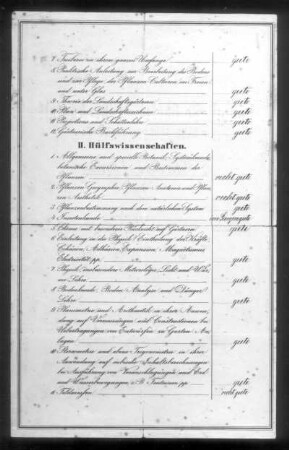 7. Treiberei in ihrem ganzen Umfange gute
8. Praktische Anleitung zur Bearbeitung des Bodens
und zur Pflege der Pflanzen Culturen im Freien
und unter Glas gute
9. Theorie der Landschaftsgärtnerei gute
10. Plan und Landschaftszeichnen gute
11. Projektions und Schattenlehre gute
12. Gärtnerische Buchführung gute
II. Hülfswissenschaften.
1. Allgemeine und specielle Botanik, Systemkunde,
botanische Excursionen und
Pflanzen recht gute
2. Pflanzen Geographie, Pflanzen Anatomie und Pflanzen
Aesthetik recht gute
3. Pflanzenbestimmung nach dem natürlichen System gute
4. Insectenkunde
5. Chemie mit besonderer Rücksicht auf Gärtnerei gute
6. Einleitung in die Physik
Cohäsion, Adhäsion, Expansion, Magnetismus
Electricität pp. gute
7. Physik, insbesondere Meteorologie, Licht und Wär-
me Lehre gute
8. Bodenkunde, Boden Analyse und Dünger
Lehre gute
9. Planimetrie und Arithmetik in ihrer Anwen-
dung auf Vermessungen und
Uebertragungen von Entwürfen in Garten An-
lagen gute
10. Stereometrie und ebene Trigonometrie in ihrer
Anwendung auf
bei Ausführung von und Erd
und Wasserbewegungen z. B. pp. gute
11. Feldmessen recht gute